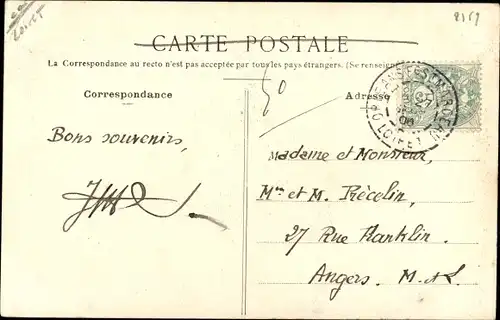 45 Loiret
2159
CARTE POSTALE
La Correspondance au recto n'est pas acceptée par tous les pays étrangers. (Se renseigner
50
Correspondance
Adresse
LOIRET
Bons souvenirs,
Madame et Monsieur,
Mme et M. Récelin,
27 Rue Franklin.
Angers. M. & L.